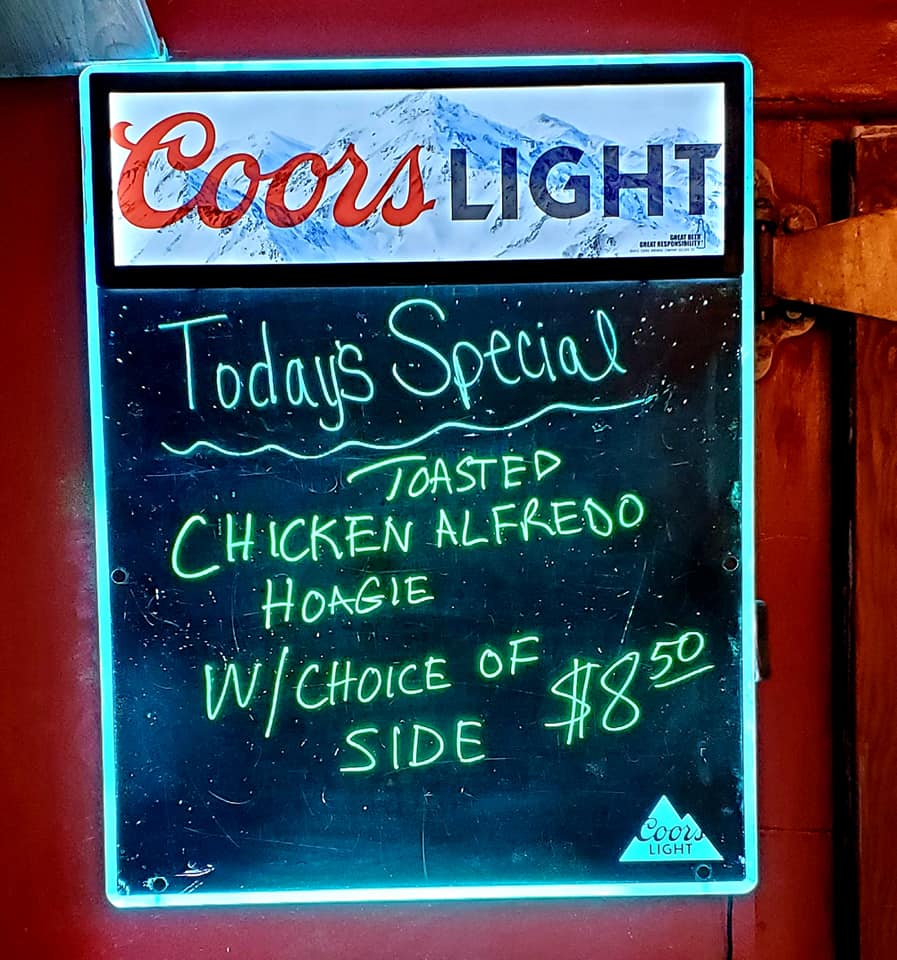 Coors LIGHT
GREAT BEER
GREAT RESPONSIBILITY
Today's Special
TOASTED
CHICKEN ALFREDO
HOAGIE
W/CHOICE OF
SIDE $8.50
Coors
LIGHT